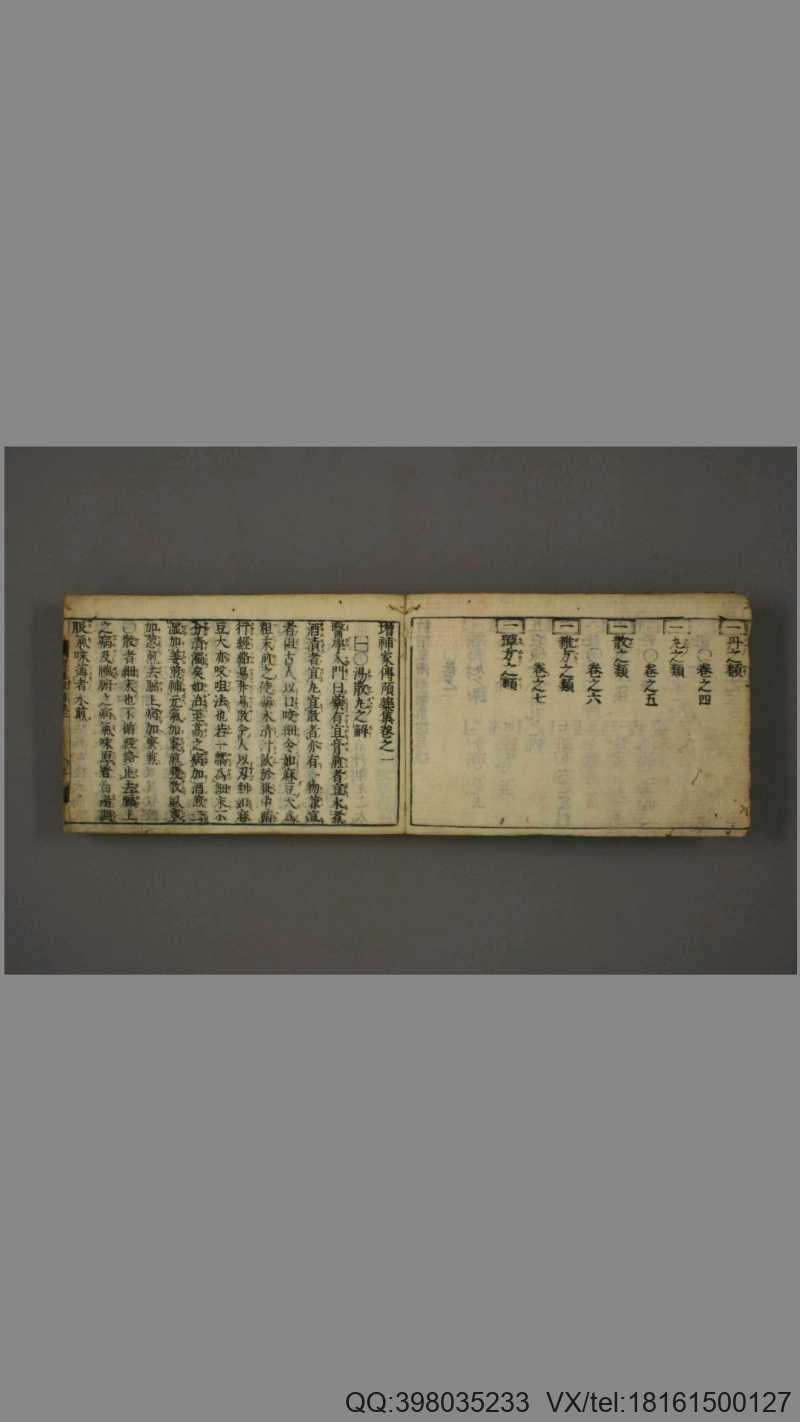 一丹之類
〇卷之四
一丸之類
〇卷之五
一散之類
〇卷之六
一雜方之類
卷之七
一單方之類
增補家傳預藥集卷之一
一〇湯散丸之辭
醫學入門曰藥有宜骨煎者宜水煮
酒漬者宜丸宜散者亦有一物兼宜
者但古人以口咬細令如麻豆大為
粗末煎之使藥水清汁飲於腹中則
行經絡易升易散今人以刀剉如麻
豆大亦咬咀法也若一概為細末不
分清濁矣如治至高之病加酒煎去
濕加姜煎補元氣加棗煎發散風寒
加葱煎去膈上病加蜜煎
〇散者細末也不循經絡止去膈上
之病及臟腑之病氣味厚者白湯調
服氣味薄者水煎
QQ:398035233 VX/tel:18161500127